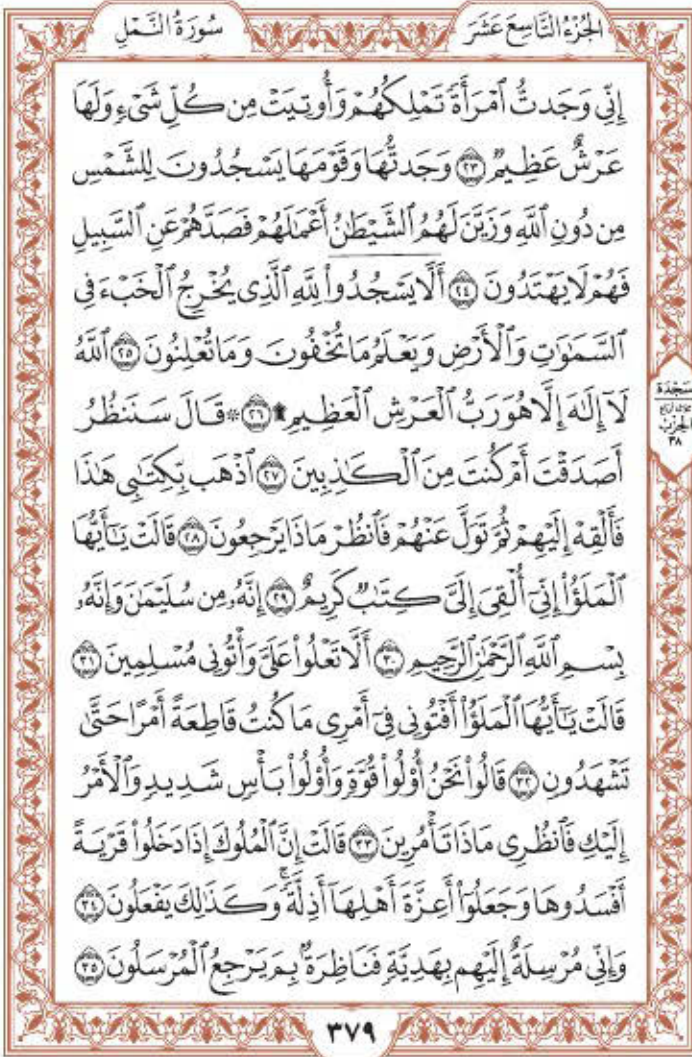 الجُزْءُ التَّاسِعَ عَشَرَ
سُورَةُ النَّمْلِ
إِنِّي وَجَدتُّ ٱمْرَأَةً تَمْلِكُهُمْ وَأُوتِيَتْ مِن كُلِّ شَىْءٍ وَلَهَا
عَرْشٌ عَظِيمٌ ﴿٢٣﴾ وَجَدتُّهَا وَقَوْمَهَا يَسْجُدُونَ لِلشَّمْسِ
مِن دُونِ ٱللَّهِ وَزَيَّنَ لَهُمُ ٱلشَّيْطَٰنُ أَعْمَٰلَهُمْ فَصَدَّهُمْ عَنِ ٱلسَّبِيلِ
فَهُمْ لَا يَهْتَدُونَ ﴿٢٤﴾ أَلَّا يَسْجُدُوا۟ لِلَّهِ ٱلَّذِى يُخْرِجُ ٱلْخَبْءَ فِى
ٱلسَّمَٰوَٰتِ وَٱلْأَرْضِ وَيَعْلَمُ مَا تُخْفُونَ وَمَا تُعْلِنُونَ ﴿٢٥﴾ ٱللَّهُ
لَآ إِلَٰهَ إِلَّا هُوَ رَبُّ ٱلْعَرْشِ ٱلْعَظِيمِ ۩ ﴿٢٦﴾ ۞ قَالَ سَنَنظُرُ
أَصَدَقْتَ أَمْ كُنتَ مِنَ ٱلْكَٰذِبِينَ ﴿٢٧﴾ ٱذْهَب بِّكِتَٰبِى هَٰذَا
فَأَلْقِهْ إِلَيْهِمْ ثُمَّ تَوَلَّ عَنْهُمْ فَٱنظُرْ مَاذَا يَرْجِعُونَ ﴿٢٨﴾ قَالَتْ يَٰٓأَيُّهَا
ٱلْمَلَؤُا۟ إِنِّىٓ أُلْقِىَ إِلَىَّ كِتَٰبٌ كَرِيمٌ ﴿٢٩﴾ إِنَّهُۥ مِن سُلَيْمَٰنَ وَإِنَّهُۥ
بِسْمِ ٱللَّهِ ٱلرَّحْمَٰنِ ٱلرَّحِيمِ ﴿٣٠﴾ أَلَّا تَعْلُوا۟ عَلَىَّ وَأْتُونِى مُسْلِمِينَ ﴿٣١﴾
قَالَتْ يَٰٓأَيُّهَا ٱلْمَلَؤُا۟ أَفْتُونِى فِىٓ أَمْرِى مَا كُنتُ قَاطِعَةً أَمْرًا حَتَّىٰ
تَشْهَدُونِ ﴿٣٢﴾ قَالُوا۟ نَحْنُ أُو۟لُوا۟ قُوَّةٍ وَأُو۟لُوا۟ بَأْسٍ شَدِيدٍ وَٱلْأَمْرُ
إِلَيْكِ فَٱنظُرِى مَاذَا تَأْمُرِينَ ﴿٣٣﴾ قَالَتْ إِنَّ ٱلْمُلُوكَ إِذَا دَخَلُوا۟ قَرْيَةً
أَفْسَدُوهَا وَجَعَلُوٓا۟ أَعِزَّةَ أَهْلِهَآ أَذِلَّةً ۖ وَكَذَٰلِكَ يَفْعَلُونَ ﴿٣٤﴾
وَإِنِّى مُرْسِلَةٌ إِلَيْهِم بِهَدِيَّةٍ فَنَاظِرَةٌۢ بِمَ يَرْجِعُ ٱلْمُرْسَلُونَ ﴿٣٥﴾
سَجْدَة
ثلاثة أرباع
الحِزْب
٣٨
٣٧٩